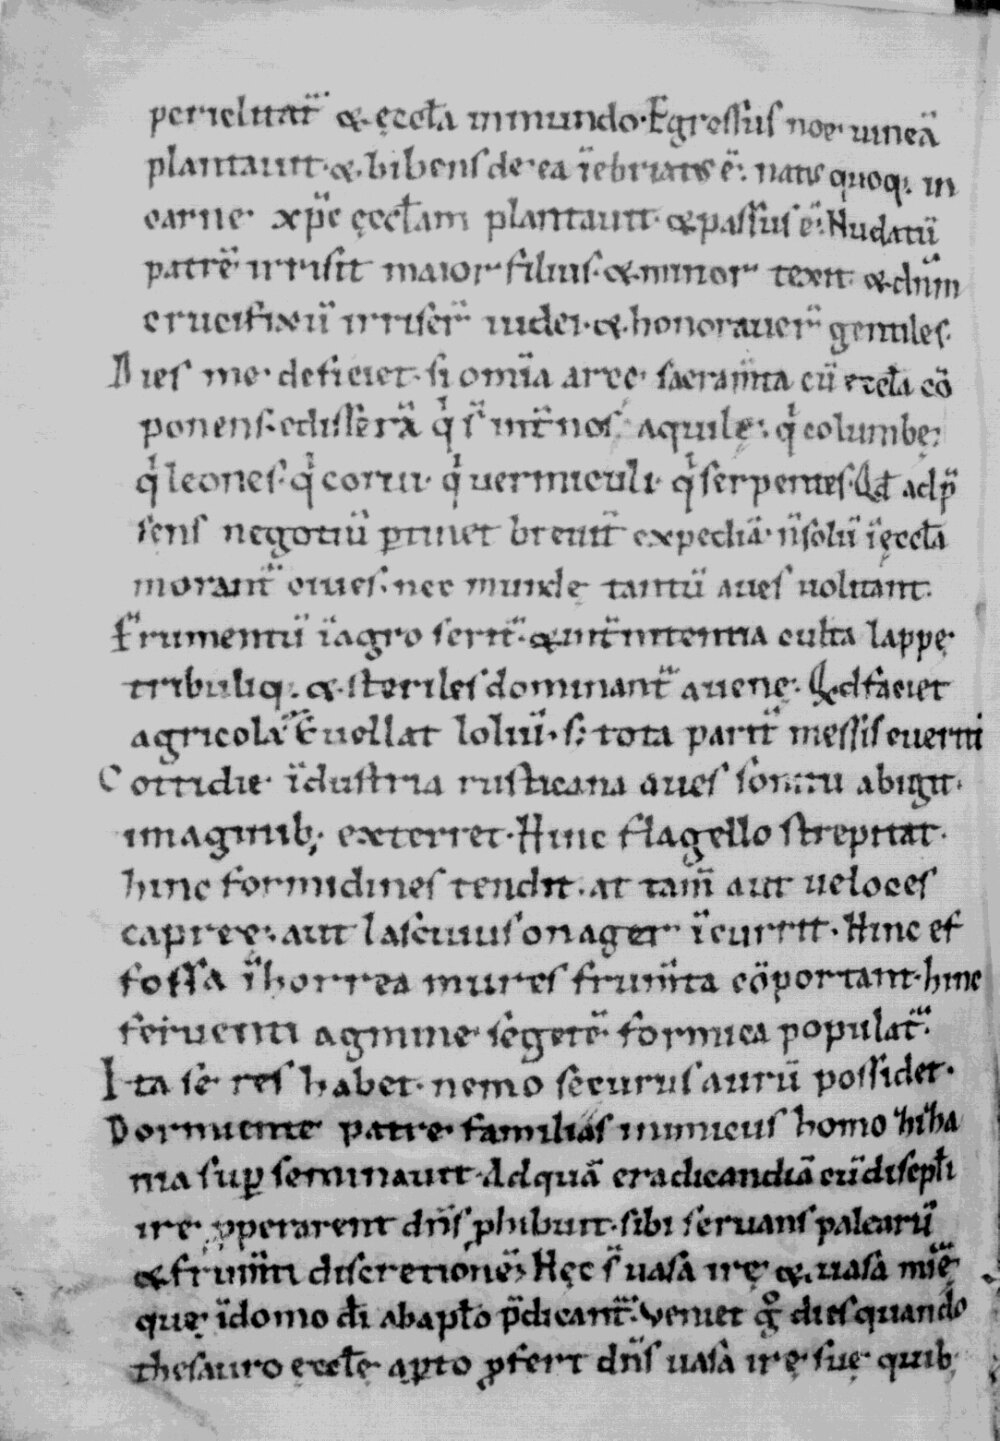 periclitat̄ & ęccl̄a in mundo. Egressus noe uineā
plantauit. & bibens de ea īebriatus ē. natus quoq; in
carne xp̄c ęccl̄am plantauit. & passus ē. Nudatū
patrē irrisit maior filius. & minor texit. & dn̄m
crucifixū irriser̄ iudei. & honorauer̄ gentiles.
Dies me deficiet. si om̄ia arce sacram̄ta cū eccl̄a cō
ponens. edisserā q̄ s̄ int̄ nos aquilę. q̄ columbę.
q̄ leones. q̄ corui. q̄ uermiculi. q̄ serpentes. Qd̄ ad p̄
sens negotiū ptinet breuit̄ expediā. n̄ solū ī ęccl̄a
morant̄ oues. nec mundę tantū aues uolitant.
Frumentū ī agro serit̄. & int̄ nitentia culta lappę
tribuliq; & steriles dominant̄ auenę. Qd faciet
agricola? Euellat loliū. s; tota parit̄ messis euertit̄
Cottidie īdustria rusticana aues sonitu abigit.
imaginib; exterret. Hinc flagello strepitat.
hinc formidines tendit. at tam̄ aut ueloces
capreę. aut lasciuus onager īcurrit. Hinc ef
fossa ī horrea mures frum̄ta cōportant. hinc
feruenti agmine segetē formica populat̄.
Ita se res habet. nemo securus aurū possidet.
Dormiente patre familias inimicus homo zizha
nia sup seminauit. Ad quā eradicandā cū discipl̄i
ire ppararent dn̄s phibuit. sibi seruans palearū
& frum̄ti discretionē. Hęc s̄ uasa irę & uasa mīe
quę ī domo dī ab apl̄o p̄dicant̄. Veniet g̊ dies quando
thesauro eccl̄ę apto pfert dn̄s uasa irę suę quib;